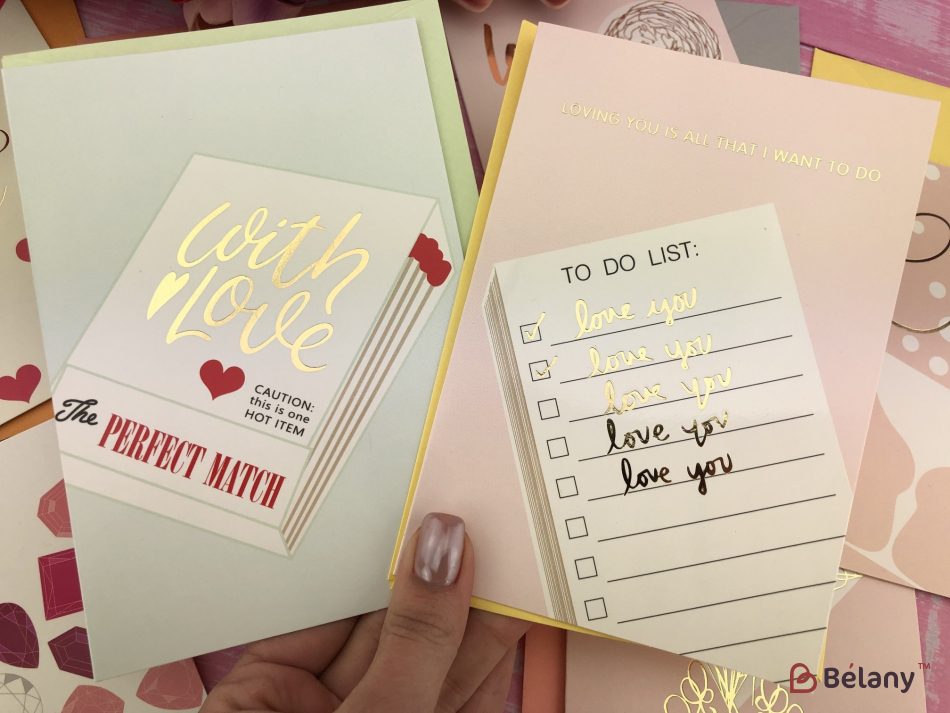 With
Love
CAUTION:
this is one
HOT ITEM
The PERFECT MATCH
LOVING YOU IS ALL THAT I WANT TO DO
TO DO LIST:
love you
love you
love you
love you
love you
Bélany™